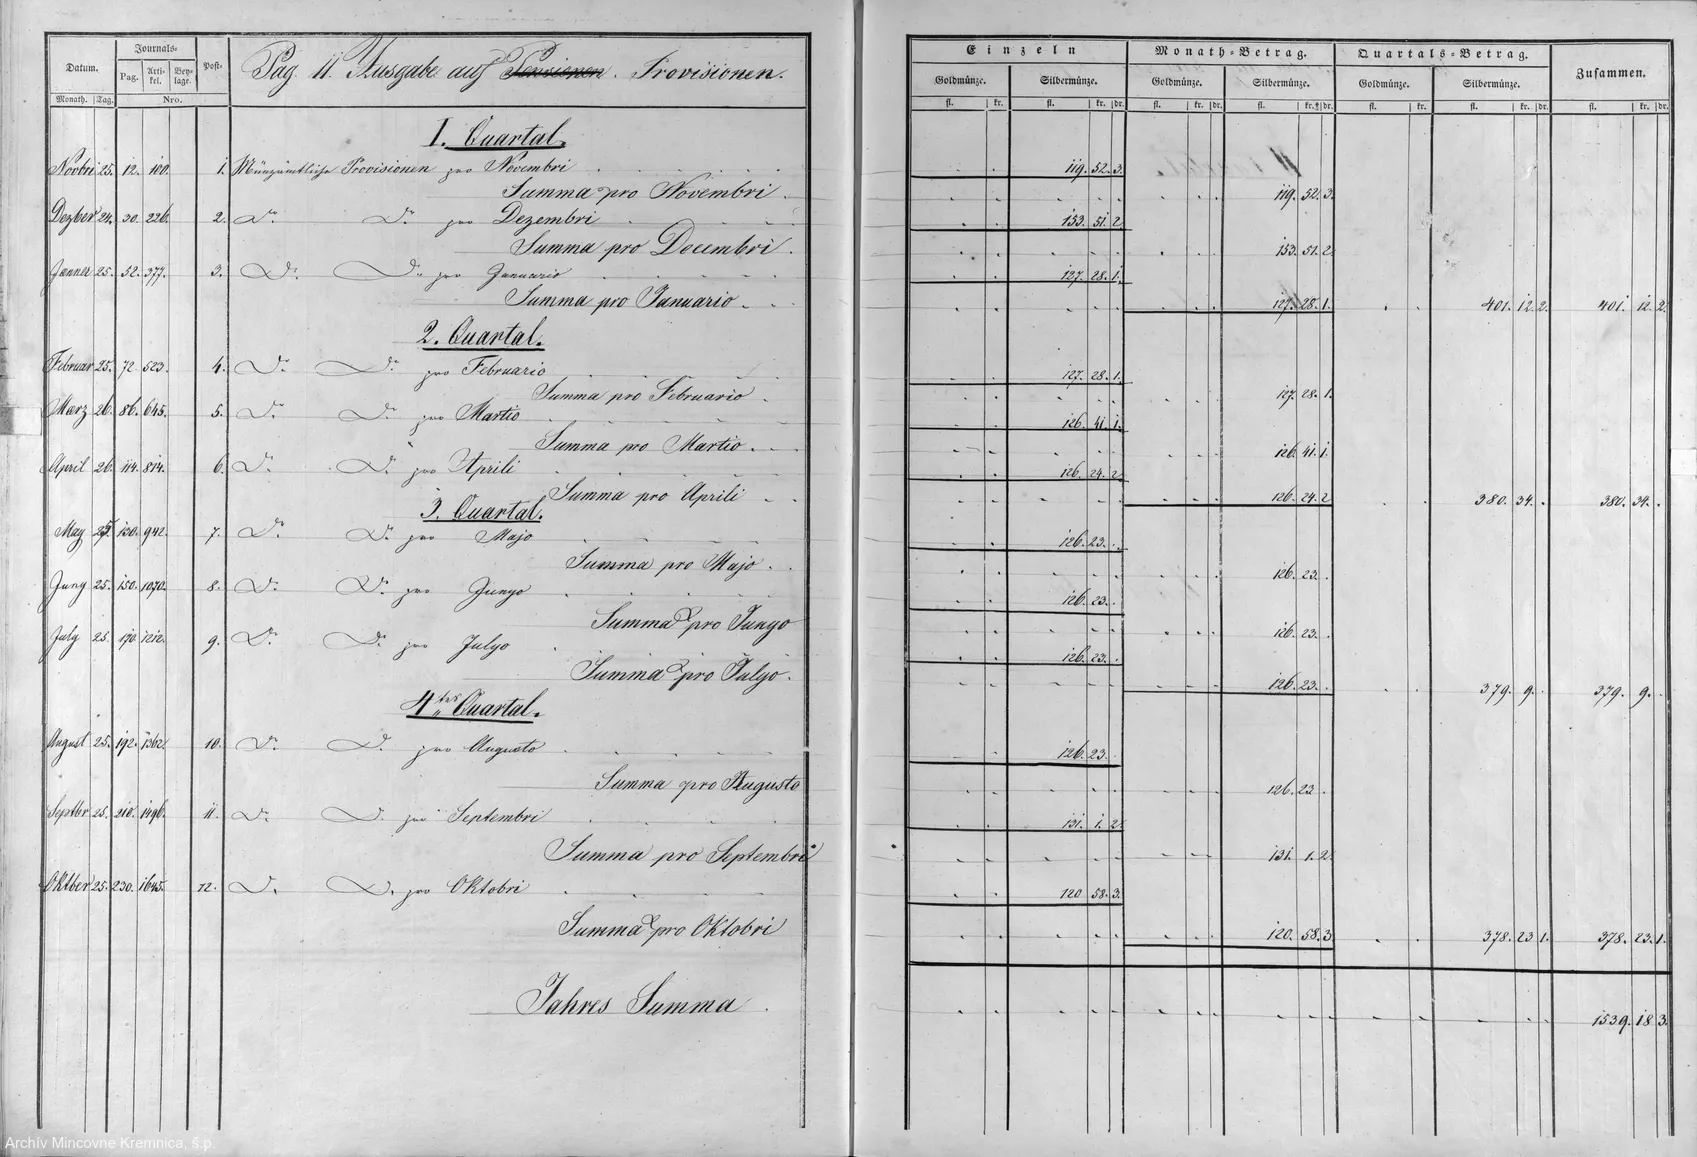 Datum. Journals- Post-
Pag. Arti-kel. Bey-lage.
Monath. Tag. Nro.
Pag. 11. Ausgabe auf Pensionen. Provisionen.
Einzeln Monath-Betrag. Quartals-Betrag. Zusammen.
Goldmünze. Silbermünze. Goldmünze. Silbermünze. Goldmünze. Silbermünze.
fl. kr. fl. kr. dr. fl. kr. dr. fl. kr. dr. fl. kr. fl. kr. dr. fl. kr. dr.
I. Quartal.
Novbri 25. 12. 100. 1. Münzämtliche Provisionen pro Novembri 119. 52. 3.
Summa pro Novembri 119. 52. 3.
Dezber 24. 30. 226. 2. Do Do pro Dezembri 153. 51. 2.
Summa pro Decembri. 153. 51. 2.
Jänner 25. 52. 377. 3. Do Do pro Januario 127. 28. 1.
Summa pro Januario 127. 28. 1. 401. 12. 2. 401. 12. 2.
2. Quartal.
Februar 25. 72. 523. 4. Do Do pro Februario 127. 28. 1.
Summa pro Februario 127. 28. 1.
Maerz 26. 86. 645. 5. Do Do pro Martio 126. 41. 1.
Summa pro Martio 126. 41. 1.
April 26. 114. 814. 6. Do Do pro Aprili 126. 24. 2.
Summa pro Aprili 126. 24. 2 380. 34. 380. 34.
3. Quartal.
May 25. 130. 942. 7. Do Do pro Majo 126. 23.
Summa pro Majo 126. 23.
Juny 25. 150. 1070. 8. Do Do pro Junyo 126. 23.
Summa pro Junyo 126. 23.
July 25. 170. 1212. 9. Do Do pro Julyo 126. 23.
Summa pro Julyo. 126. 23. 379. 9. 379. 9.
4tes Quartal.
August 25. 192. 1362. 10. Do Do pro Augusto 126. 23.
Summa pro Augusto 126. 23.
Septber 25. 210. 1496. 11. Do Do pro Septembri 131. 1. 2.
Summa pro Septembri 131. 1. 2.
Oktber 25. 230. 1645. 12. Do Do pro Oktobri 120 58. 3.
Summa pro Oktobri 120. 58. 3 378. 23 1. 378. 23. 1.
Jahres Summa 1539. 18 3.
Archív Mincovne Kremnica, š.p.